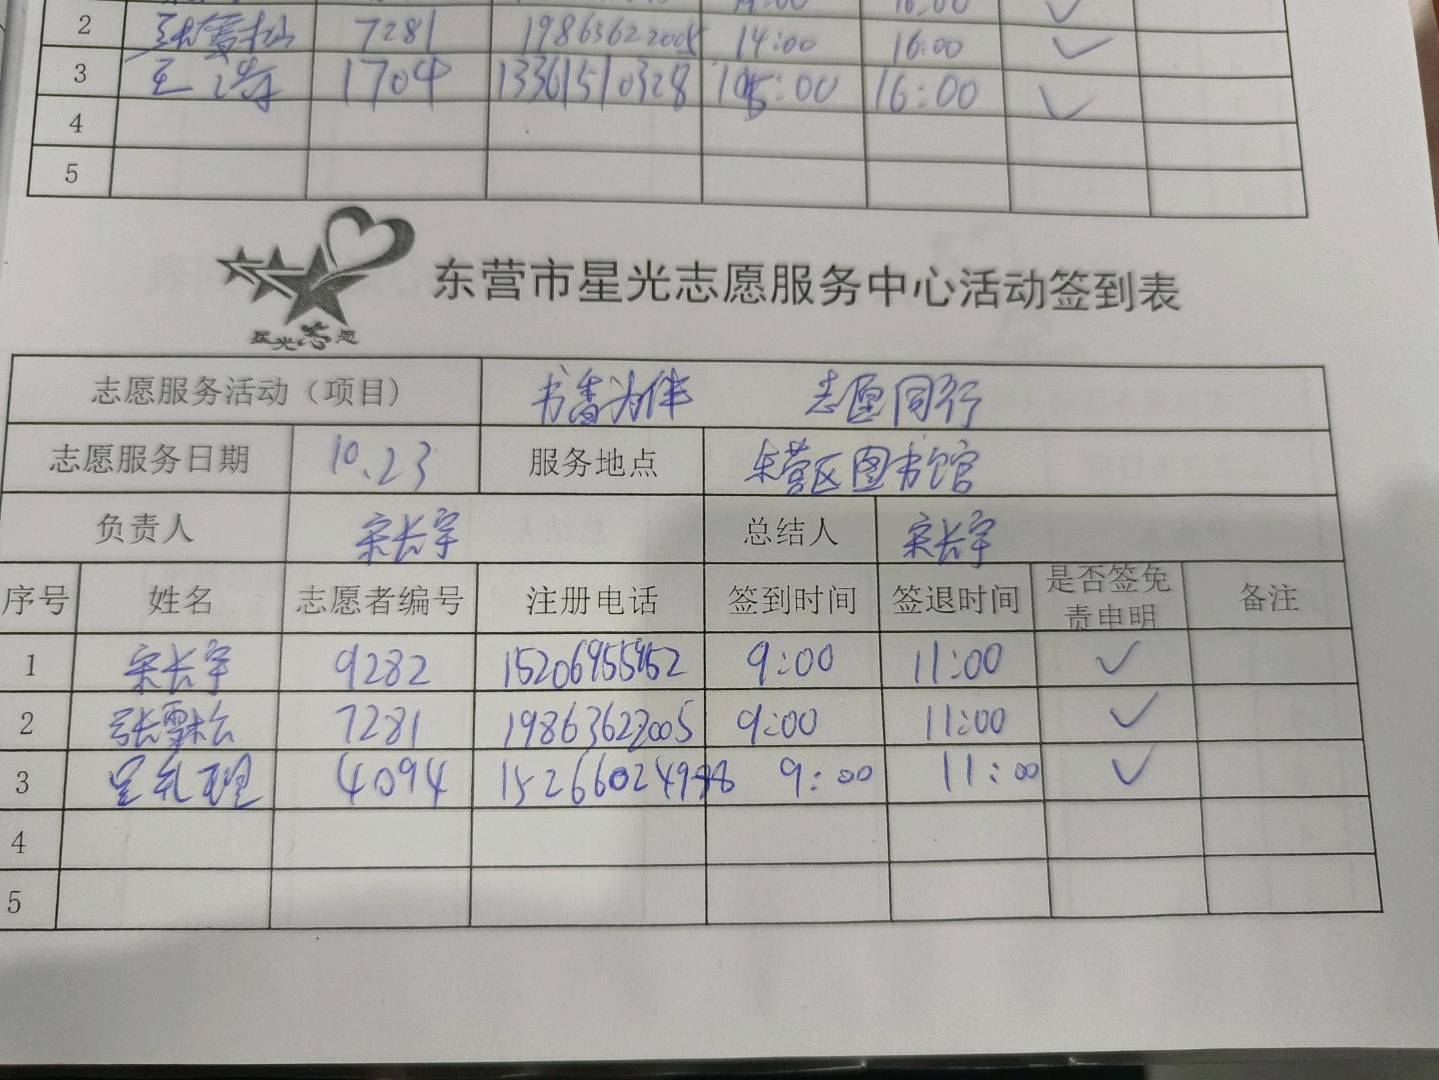 16:00
2 张雪松 7281 19863622005 14:00 16:00 ✓
3 王 1704 13361510328 16:00 ✓
4
5
星光志愿
东营市星光志愿服务中心活动签到表
志愿服务活动（项目） 书香为伴 志愿同行
志愿服务日期 10.23 服务地点 东营区图书馆
负责人 宋长宇 总结人 宋长宇
序号 姓名 志愿者编号 注册电话 签到时间 签退时间 是否签免责申明 备注
1 宋长宇 9282 15206955952 9:00 11:00 ✓
2 张雪松 7281 19863622005 9:00 11:00 ✓
3 4094 9:00 11:00 ✓
4
5